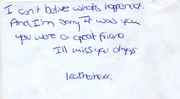 I can't believe what's happened.
And I'm sorry it was you
you were a great friend
I'll miss you always